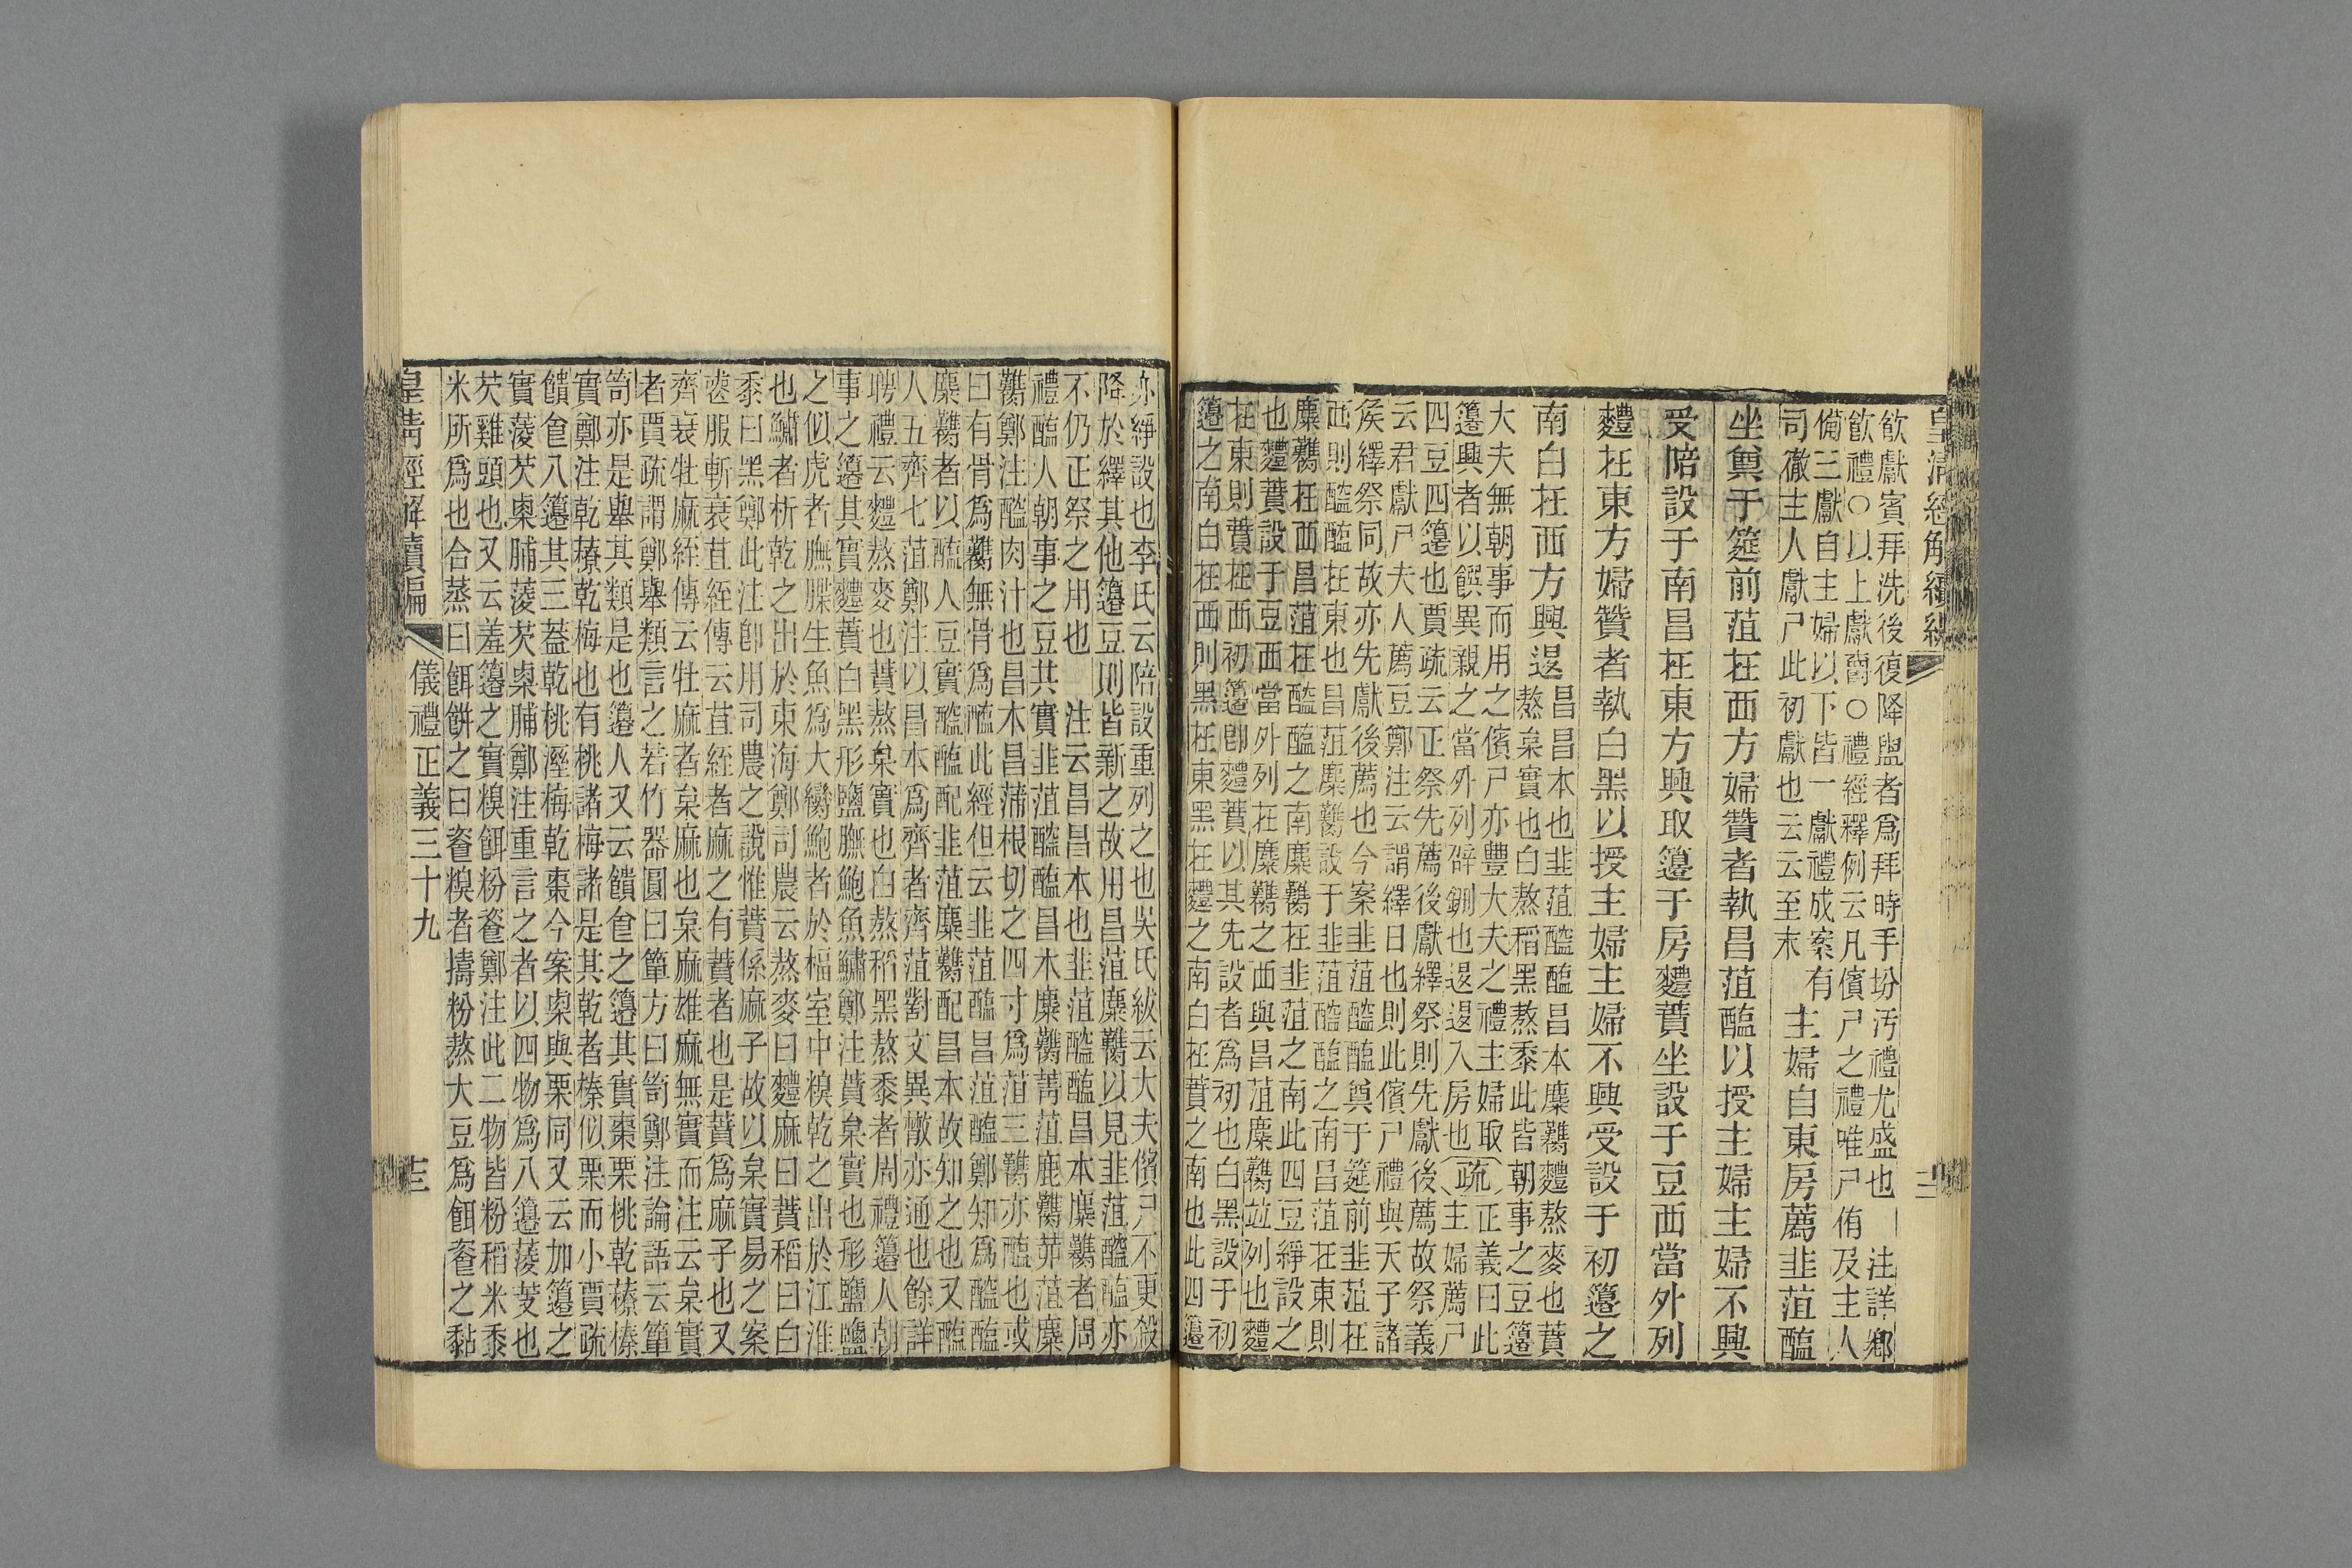 皇清經解續編
飲獻賓拜洗後復降盥者爲拜時手坋汚禮尤盛也 注詳鄉
飲禮○以上獻賓○禮經釋例云凡儐尸之禮唯尸侑及主人
備三獻自主婦以下皆一獻禮成案有
司徹主人獻尸此初獻也云云至末
主婦自東房薦韭菹醢
坐奠于筵前菹在西方婦贊者執昌菹醢以授主婦主婦不興
受陪設于南昌在東方興取籩于房麷蕡坐設于豆西當外列
麷在東方婦贊者執白黑以授主婦主婦不興受設于初籩之
南白在西方興退
昌昌本也韭菹醓醢昌本麋臡麷熬麥也蕡
熬枲實也白熬稻黑熬黍此皆朝事之豆籩
大夫無朝事而用之儐尸亦豐大夫之禮主婦取
籩興者以饌異親之當外列辟鉶也退退入房也
疏
正義曰此
主婦薦尸
四豆四籩也賈疏云正祭先薦後獻繹祭則先獻後薦故祭義
云君獻尸夫人薦豆鄭注云謂繹日也則此儐尸禮與天子諸
侯繹祭同故亦先獻後薦也今案韭菹醓醢奠于筵前韭菹在
西則醓醢在東也昌菹麋臡設于韭菹醓醢之南昌菹在東則
麋臡在西昌菹在醓醢之南麋臡在韭菹之南此四豆綪設之
也麷蕡設于豆西當外列在麋臡之西與昌菹麋臡竝列也麷
在東則蕡在西初籩卽麷蕡以其先設者爲初也白黑設于初
籩之南白在西則黑在東黑在麷之南白在蕡之南也此四籩
亦綪設也李氏云陪設重列之也吳氏紱云大夫儐尸不更殺
降於繹其他籩豆則皆新之故用昌菹麋臡以見韭菹醓醢亦
不仍正祭之用也 注云昌昌本也韭菹醓醢昌本麋臡者周
禮醢人朝事之豆其實韭菹醓醢昌本麋臡菁菹鹿臡茆菹麋
臡鄭注醓肉汁也昌本昌蒲根切之四寸爲菹三臡亦醢也或
曰有骨爲臡無骨爲醢此經但云韭菹醢昌菹醢鄭知爲醓醢
麋臡者以醢人豆實醓醢配韭菹麋臡配昌本故知之也又醢
人五齊七菹鄭注以昌本爲齊者齊菹對文異散亦通也餘詳
聘禮云麷熬麥也蕡熬枲實也白熬稻黑熬黍者周禮籩人朝
事之籩其實麷蕡白黑形鹽膴鮑魚鱐鄭注蕡枲實也形鹽鹽
之似虎者膴䐑生魚爲大臠鮑者於楅室中糗乾之出於江淮
也鱐者析乾之出於東海鄭司農云熬麥曰麷麻曰蕡稻曰白
黍曰黑鄭此注卽用司農之說惟蕡係麻子故以枲實易之案
喪服斬衰苴絰傳云苴絰者麻之有蕡者也是蕡爲麻子也又
齊衰牡麻絰傳云牡麻者枲麻也枲麻雄麻無實而注云枲實
者賈疏謂鄭舉類言之若竹器圓曰簞方曰笥鄭注論語云簞
笥亦是舉其類是也籩人又云饋食之籩其實棗栗桃乾䕩榛
實鄭注乾䕩乾梅也有桃諸梅諸是其乾者榛似栗而小賈疏
饋食八籩其三蓋乾桃溼梅乾棗今案㮚與栗同又云加籩之
實蔆芡㮚脯蔆芡㮚脯鄭注重言之者以四物爲八籩蔆芰也
芡雞頭也又云羞籩之實糗餌粉餈鄭注此二物皆粉稻米黍
米所爲也合蒸曰餌餠之曰餈糗者擣粉熬大豆爲餌餈之黏
皇清經解續編
儀禮正義三十九